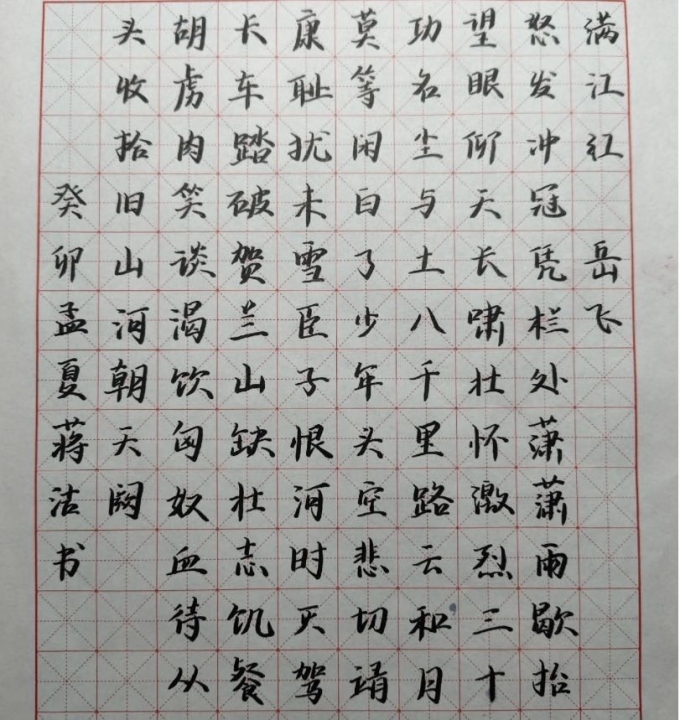 满江红 岳飞
怒发冲冠凭栏处潇潇雨歇抬
望眼仰天长啸壮怀激烈三十
功名尘与土八千里路云和月
莫等闲白了少年头空悲切靖
康耻犹未雪臣子恨河时灭驾
长车踏破贺兰山缺壮志饥餐
胡虏肉笑谈渴饮匈奴血待从
头收拾旧山河朝天阙
癸卯孟夏蒋洁书